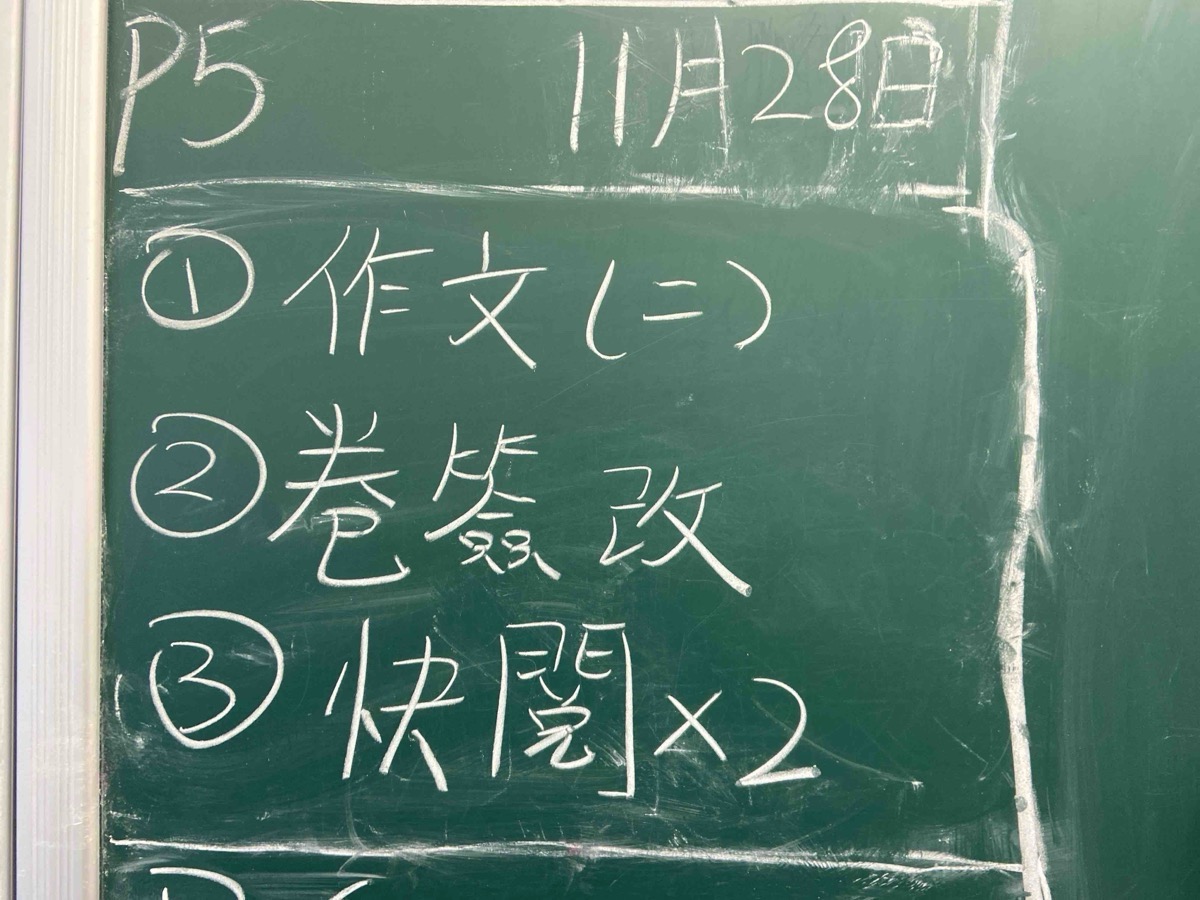 P5 11月28日
① 作文(二)
② 卷簽改
③ 快閱×2